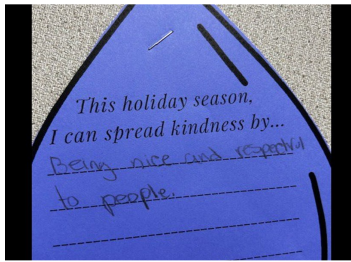 This holiday season,
I can spread kindness by...
Being nice and respectful
to people.